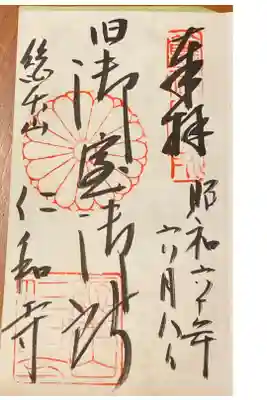 奉拝
昭和六十年
六月八日
旧御室御所
総本山 仁和寺